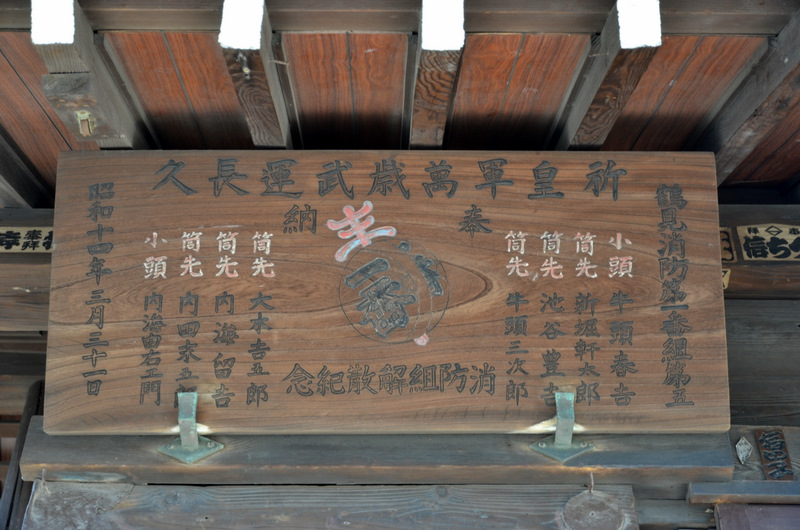 祈皇軍萬歳武運長久
奉納
鶴見消防第一番組第五
小頭 牛頭春吉
筒先 新堀軒太郎
筒先 池谷豊吉
筒先 牛頭三次郎
一番
消防組解散紀念
筒先 大木吉五郎
筒先 内海留吉
筒先 内田末五郎
小頭 内海由右エ門
昭和十四年三月三十一日